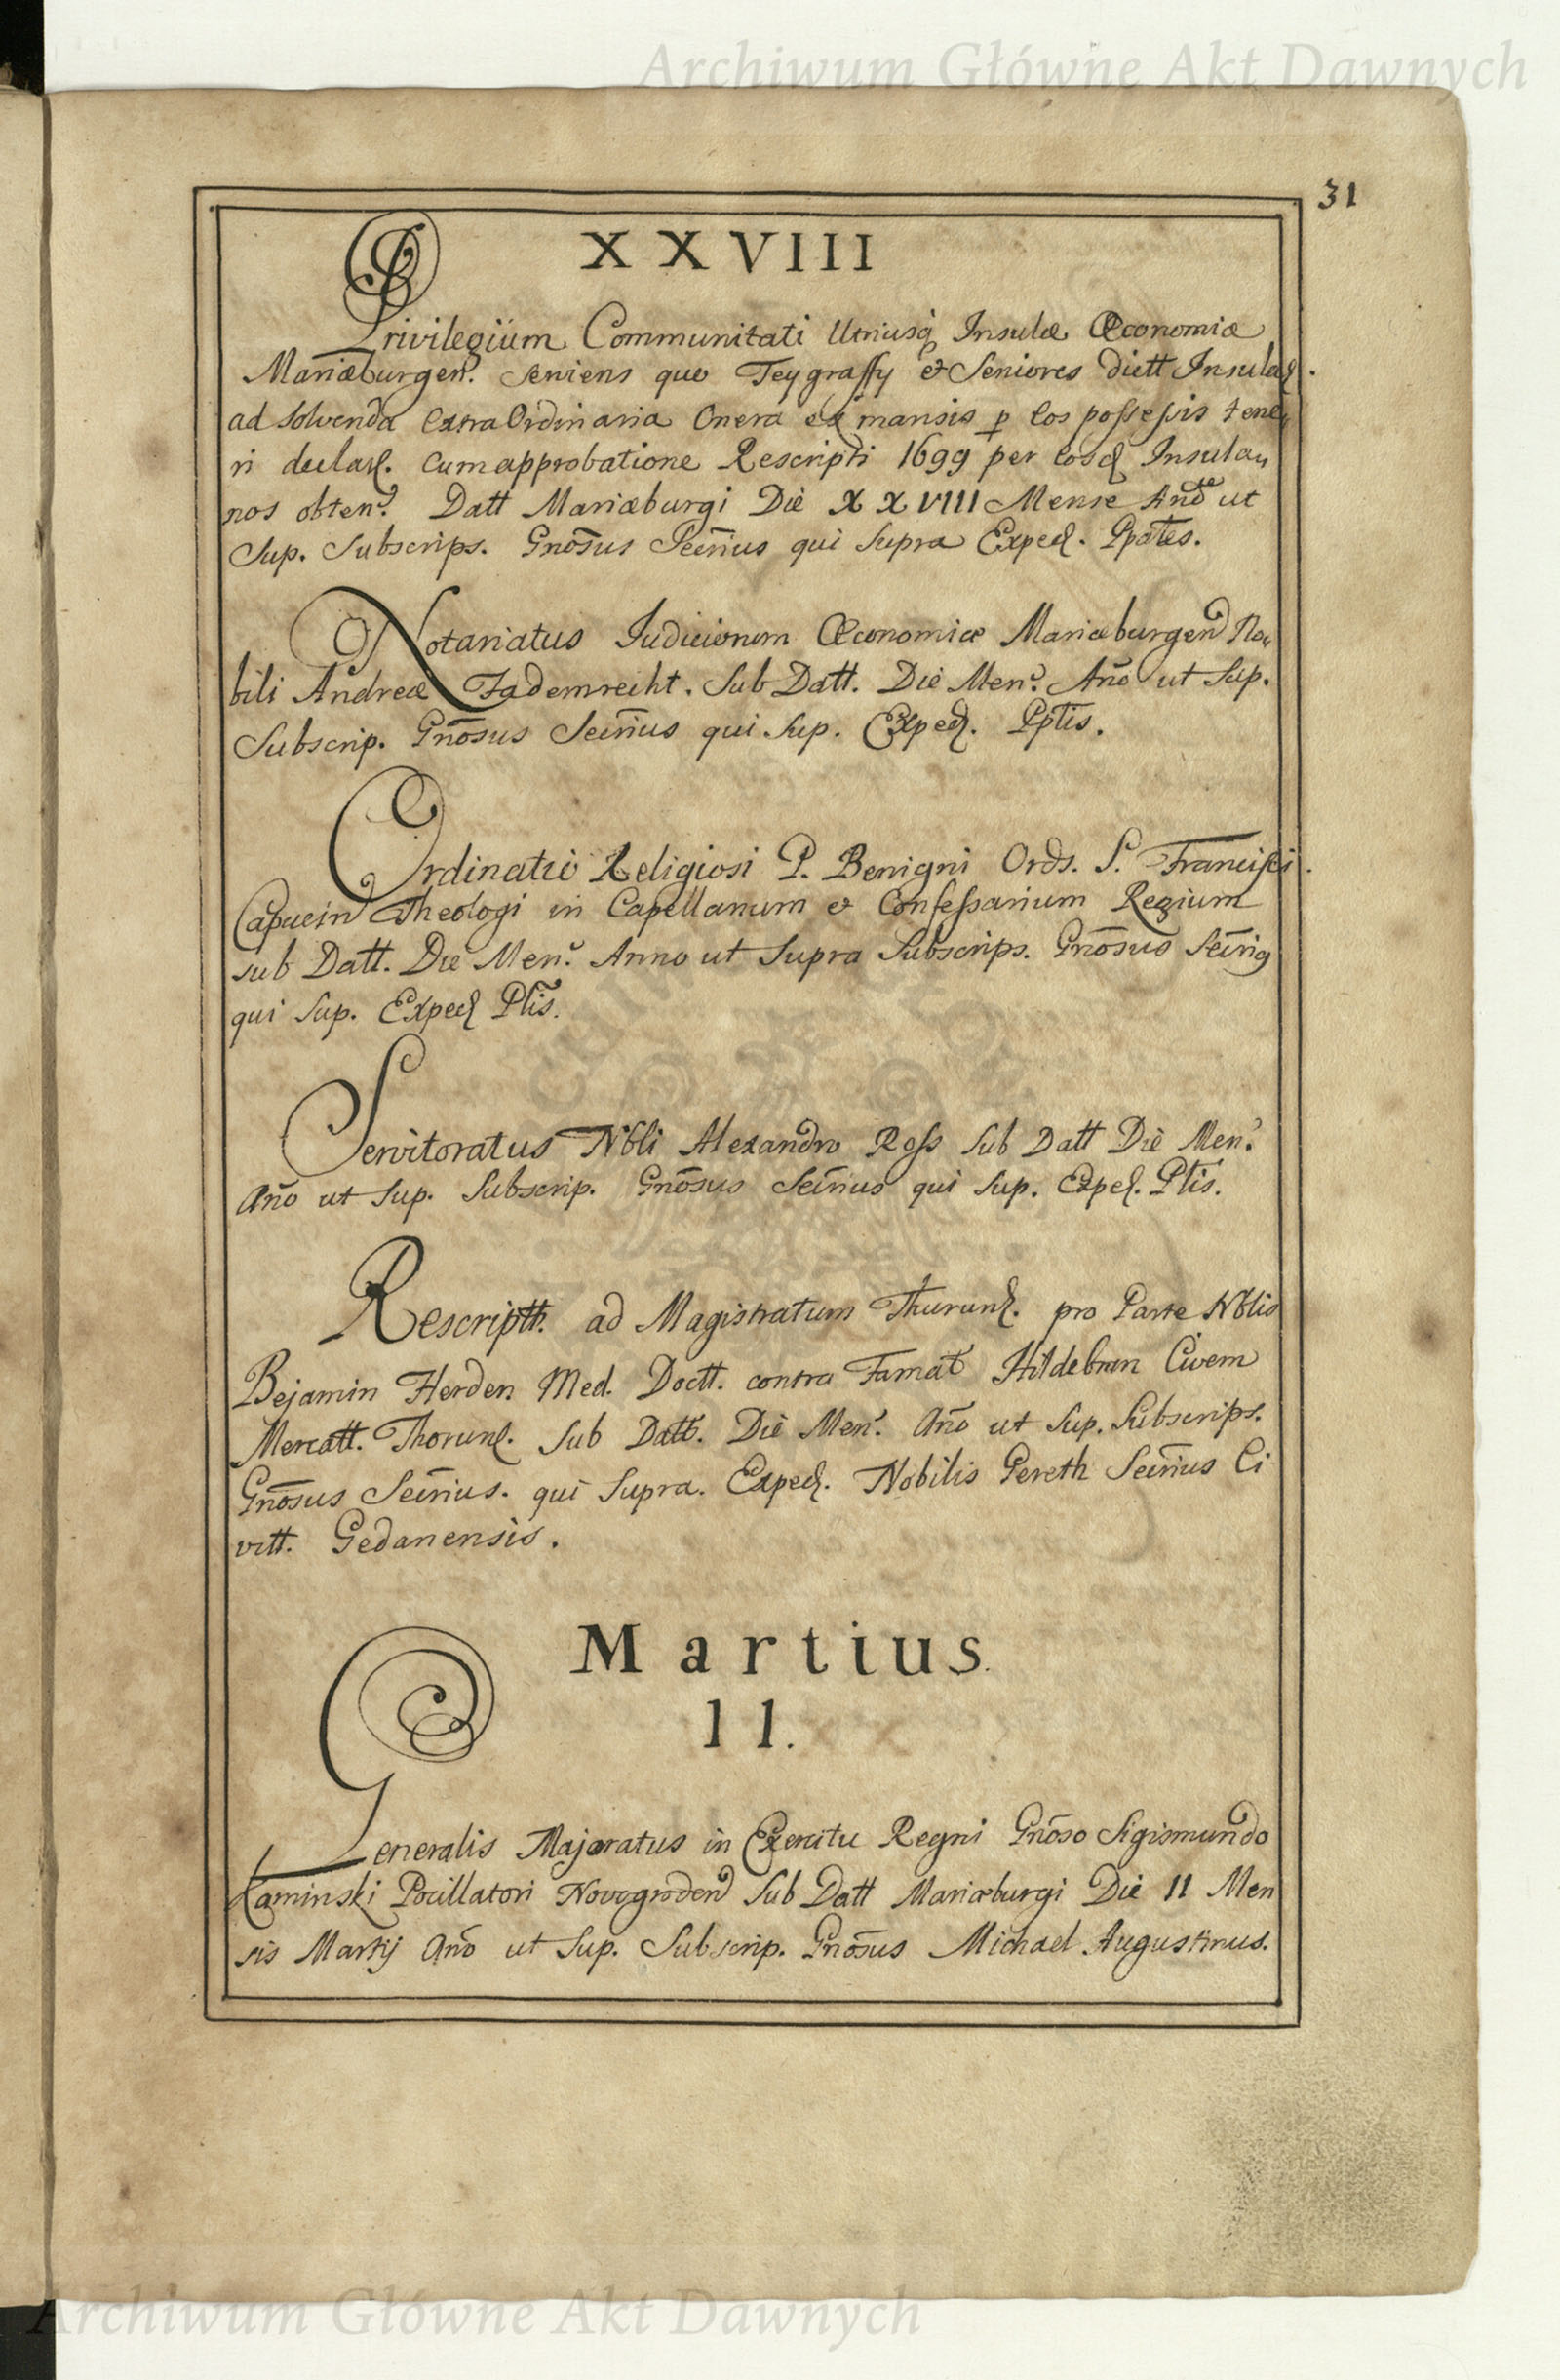 Archiwum Główne Akt Dawnych
31
XXVIII
Privilegiium Communitati Utriusq Insulæ Œconomiæ
Mariæburgen. serviens quo Teygraffy & Seniores dictt Insulaꝝ.
ad solvenda extra Ordinaria Onera ex mansis p eos possessis tene
ri declarꝭ. cum approbatione Rescripti 1699 per eosdꝭ Insula
nos obten. Datt Mariæburgi Die XXVIII Mense Anō ut
Sup. Subscrips. Gnōsus Secr̄ius qui Supra Exped. Ppātes.
Notariatus Iudiciorum Œconomiæ Mariæburgen No
bili Andreæ Fademrecht. Sub Datt. Die Men. Ano ut Sup.
Subscrip. Gnōsus Secr̄ius qui Sup. Exped. Pptis.
Ordinatio Religiosi P. Benigni Ords. S. Francisci.
Capucin Theologi in Capellanum & Confessarium Regium
sub Datt. Die Men. Anno ut Supra Subscrips. Gnōsus Secr̄ig
qui Sup. Exped Ptis.
Servitoratus Nbli Alexandro Ross Sub Datt Die Men.
Año ut Sup. Subscrip. Gnōsus Secr̄ius qui Sup. Exped. Ptis.
Rescriptt. ad Magistratum Thorunꝭ. pro Parte Nblis
Bejamin Herden Med. Doctt. contra Famat Hildebran Civem
Mercatt. Thorunꝭ. Sub Datt. Die Men. Año ut Sup. Subscrips.
Gnōsus Secr̄ius. qui Supra. Exped. Nobilis Pereth Secr̄ius Ci
vitt. Gedanensis.
Martius.
11.
Generalis Majoratus in Exercitu Regni Gnōso Sigismundo
Kaminski Pocillatori Novogroden Sub Datt Mariæburgi Die 11 Men
sis Martij Anō ut Sup. Subscrip. Gnōsus Michael Augustinus.
Archiwum Główne Akt Dawnych